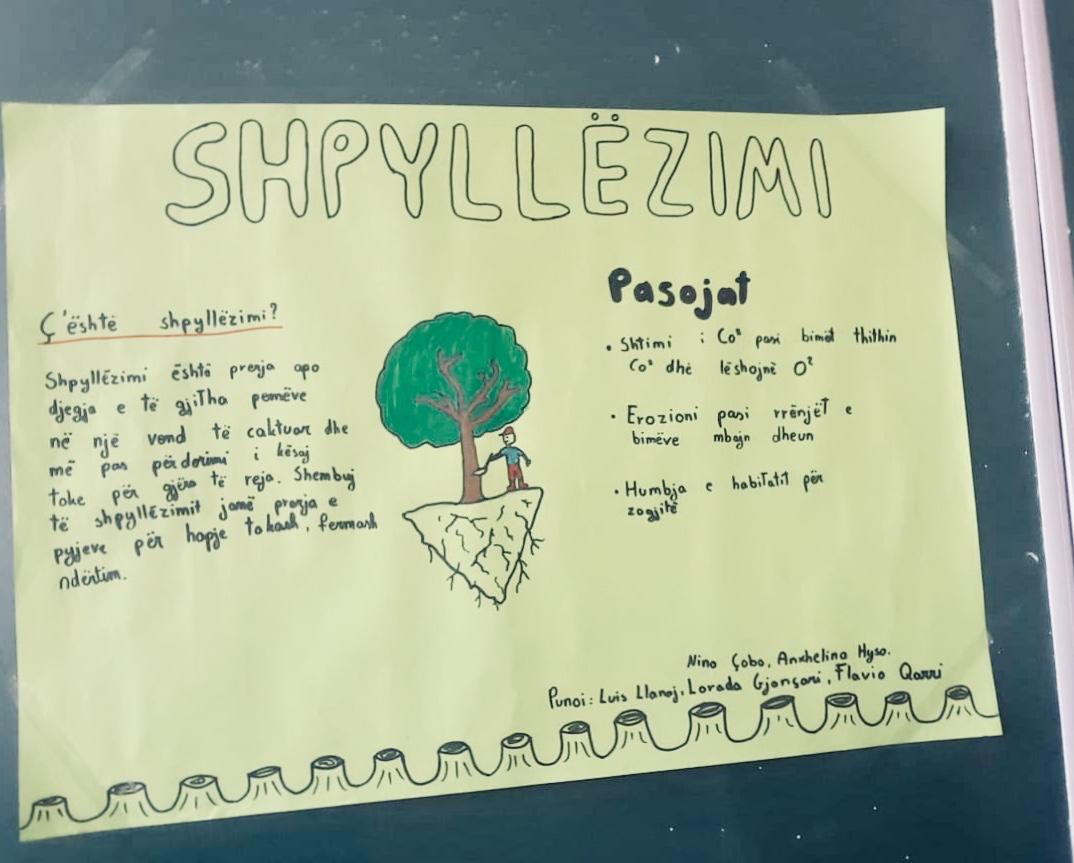 SHPYLLËZIMI
Ç'është shpyllëzimi?
Shpyllëzimi është prerja apo
djegja e të gjitha pemëve
në një vend të caktuar dhe
më pas përdorimi i kësaj
toke për gjëra të reja. Shembuj
të shpyllëzimit janë prerja e
pyjeve për hapje tokash, fermash
ndërtim.
Pasojat
• Shtimi i Co² pasi bimët thithin
Co² dhe lëshojnë O²
• Erozioni pasi rrënjët e
bimëve mbajn dheun
• Humbja e habitatit për
zogjitë
Nino Çobo, Anxhelino Hyso.
Punoi: Luis Llanaj, Lorada Gjonçari, Flavio Qarri